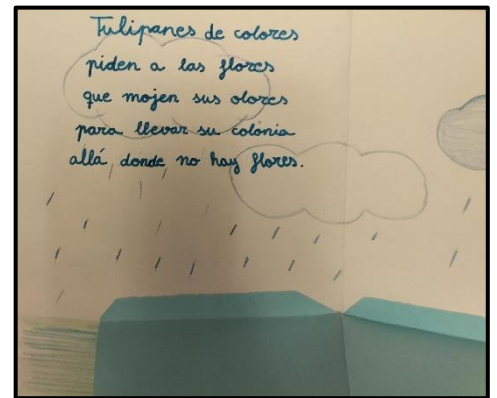 Tulipanes de colores
piden a las flores
que mojen sus olores
para llevar su colonia
allá, donde no hay flores.